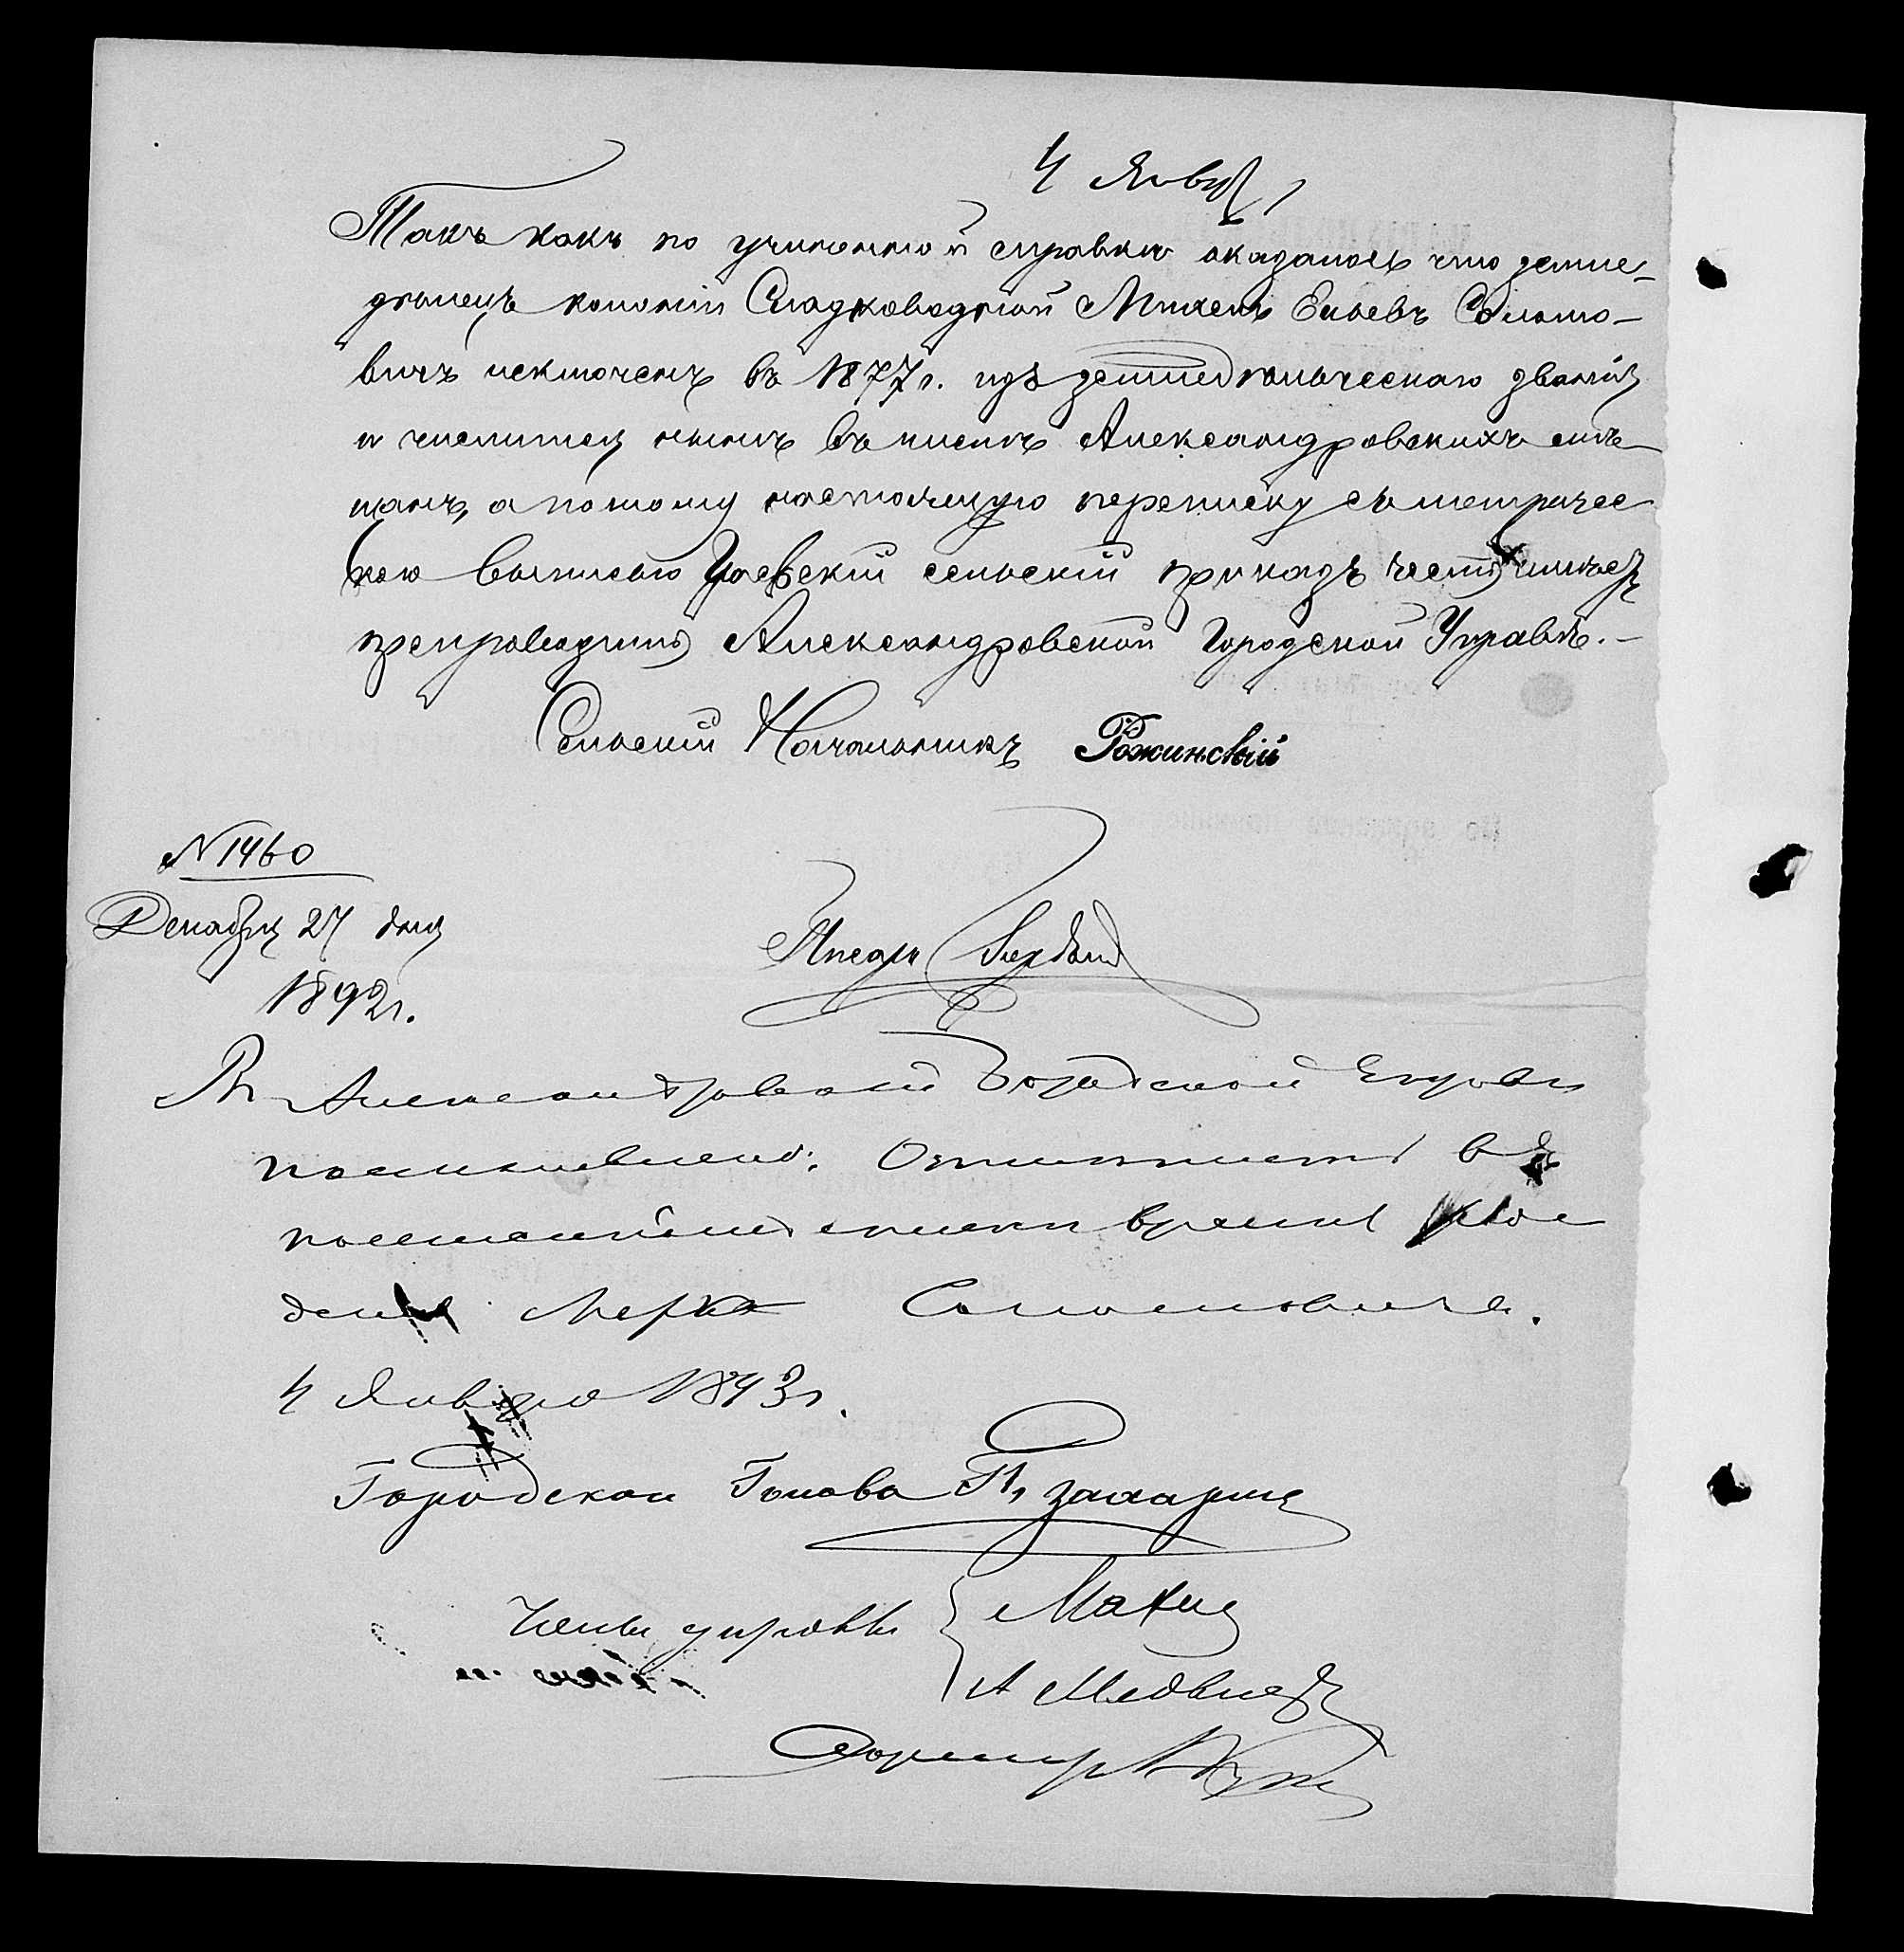 4 Январ
Такъ какъ по учиненной справкѣ оказалось что земле-
дѣлецъ колоніи Сладководной Михель Ельевъ Соломо-
вичъ исключенъ въ 1877 г. изъ земледѣльческаго званія
и числится нынѣ въ числѣ Александровскихъ мѣ-
щанъ, а потому настоящую переписку съ метричес
кою выписью сельскій приказъ честь имѣетъ
препроводить Александровской Городской Управѣ. -
Сельскій Начальникъ Рожинскій
N 1460
Декабря 27 дня
1892 г.
Писарь
Въ Александровской Городской Управѣ
постановлено: Отмѣтить въ
посемейномъ списки время рож
денія Соломовича.
4 Января 1893 г.
Городской Голова П. Захарьинъ
Члены управы
А Медведев